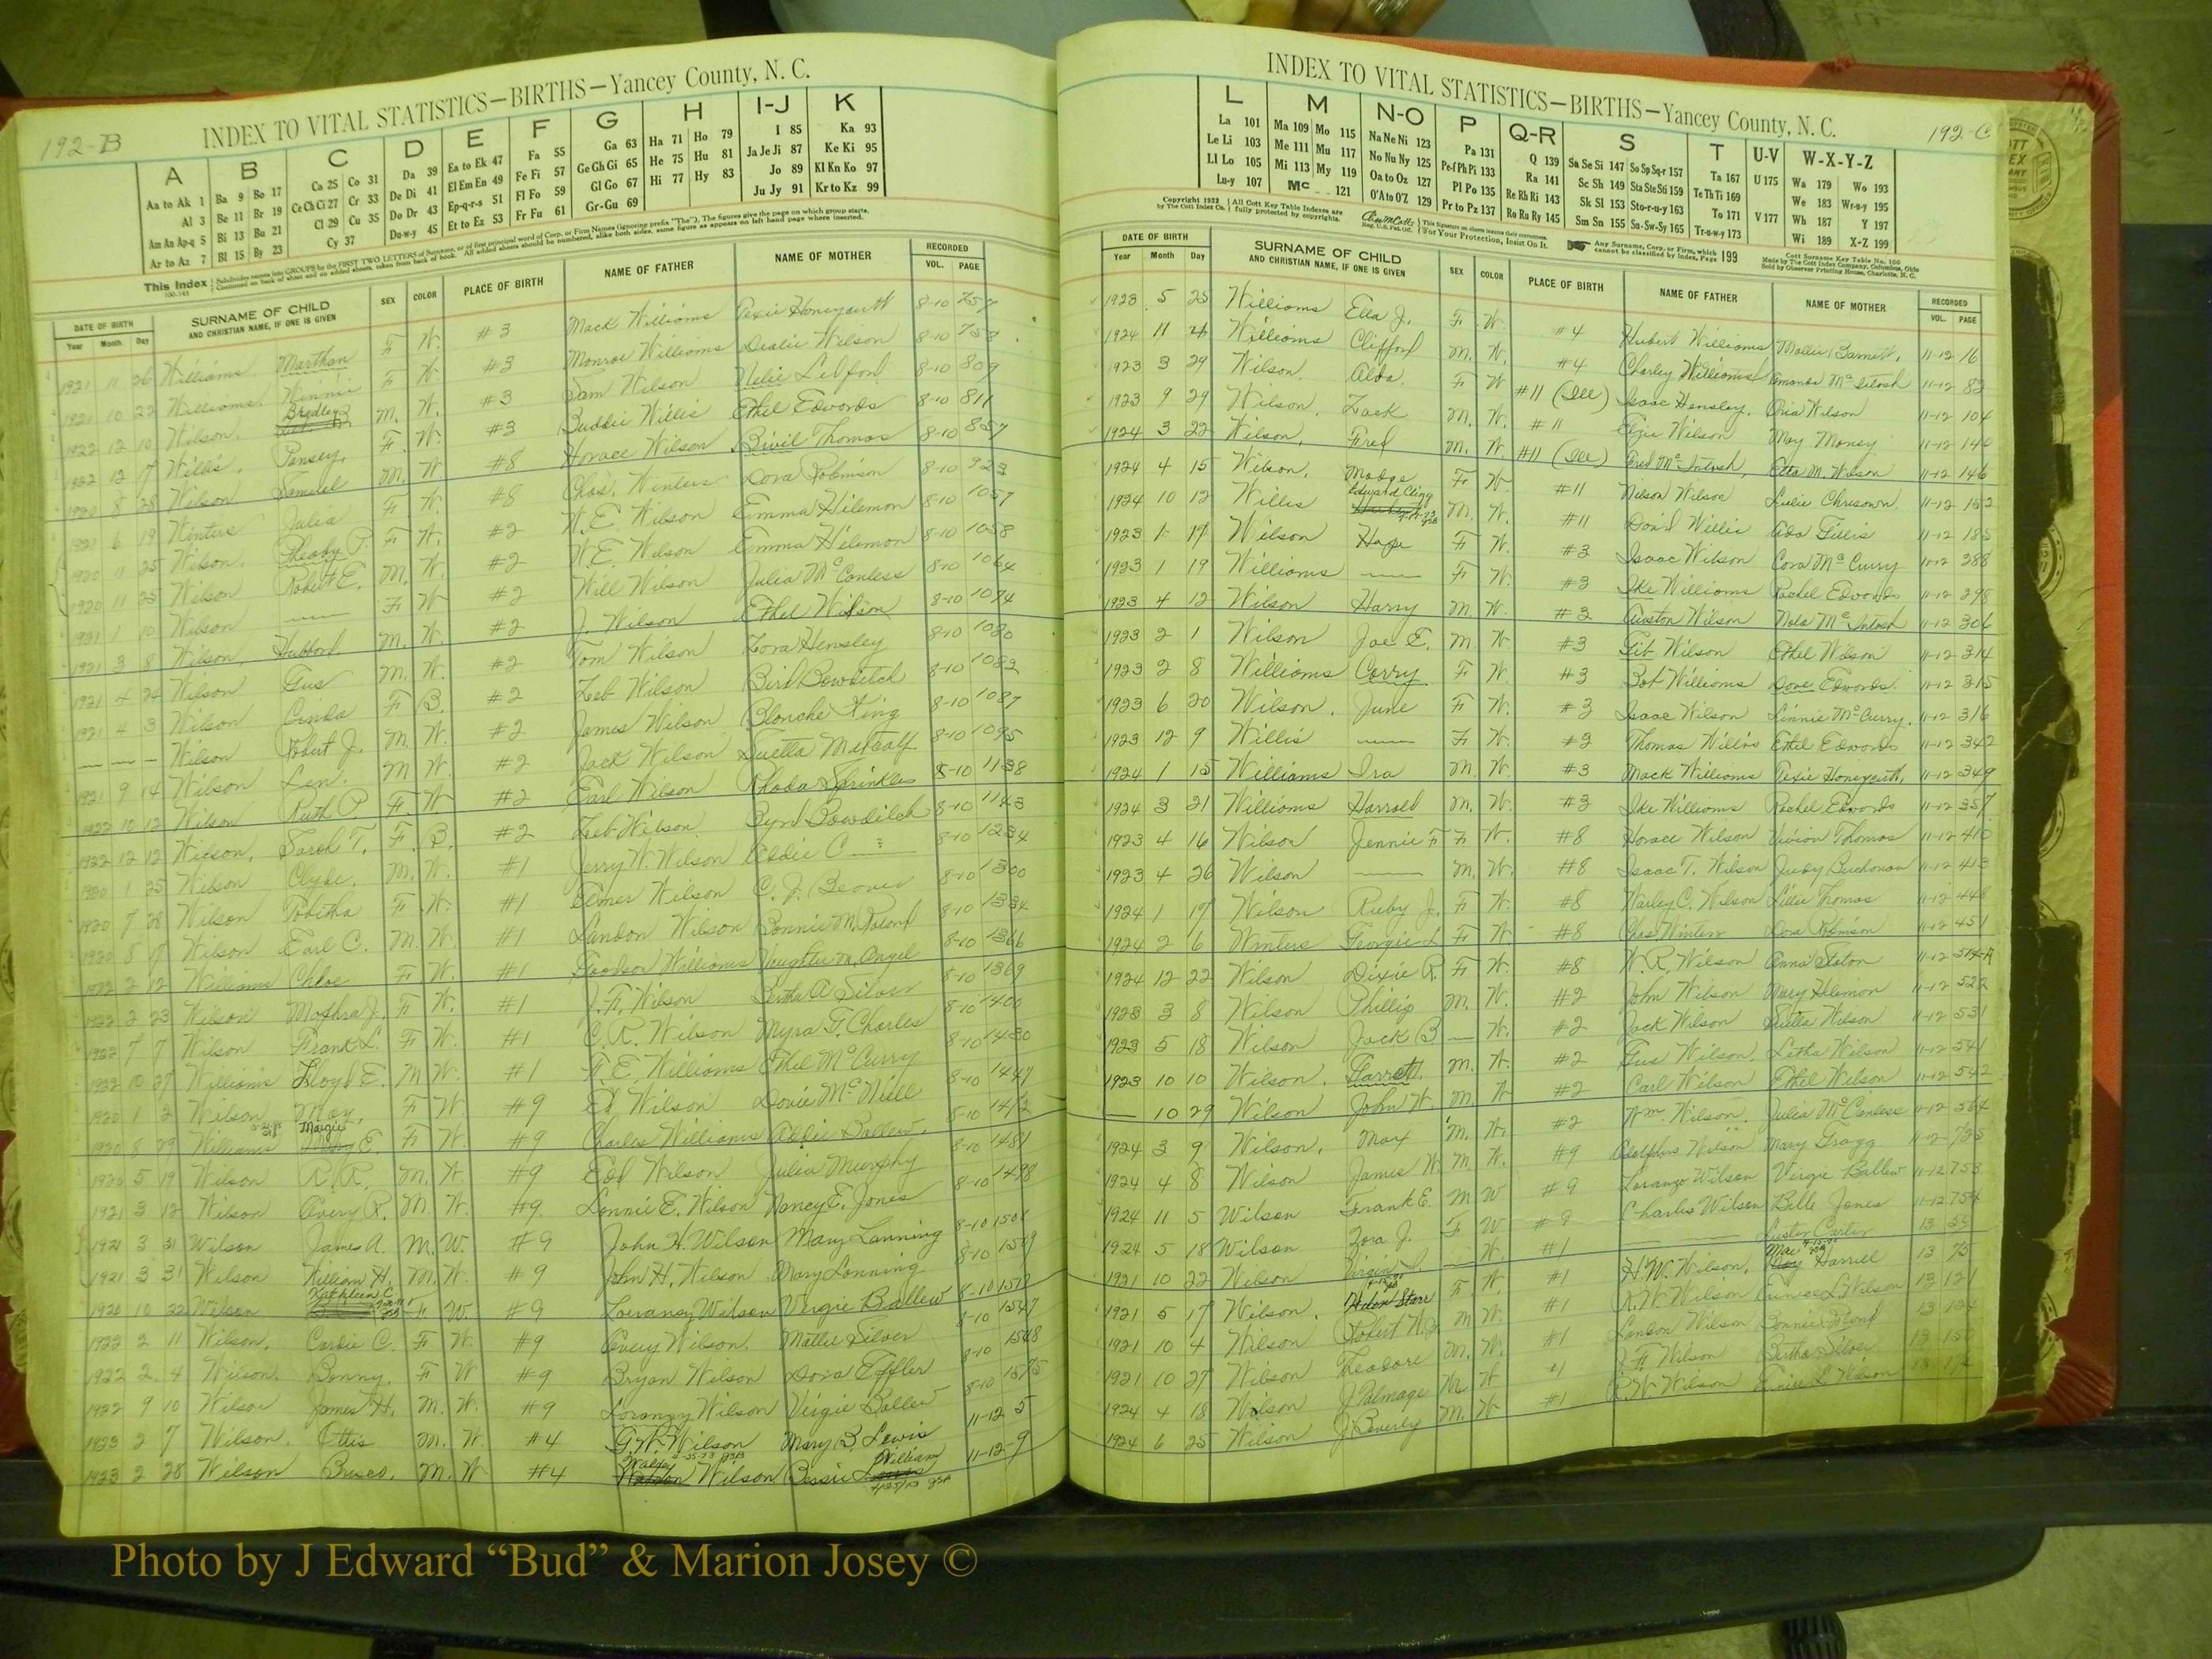 192-B
INDEX TO VITAL STATISTICS—BIRTHS—Yancey County, N. C.
A B C D E F G H I-J K
Aa to Ak 1 Ba 9 Bo 17 Ca 25 Co 31 Da 39 Ea to Ek 47 Fa 55 Ga 63 Ha 71 Ho 79 I 85 Ka 93
Al 3 Be 11 Br 19 Ce Ch Ci 27 Cr 33 De Di 41 El Em En 49 Fe Fi 57 Ge Gh Gi 65 He 75 Hu 81 Ja Je Ji 87 Ke Ki 95
Am An Ap-q 5 Bi 13 Bu 21 Cl 29 Cu 35 Do Dr 43 Ep-q-r-s 51 Fl Fo 59 Gl Go 67 Hi 77 Hy 83 Jo 89 Kl Kn Ko 97
Ar to Az 7 Bl 15 By 23 Cy 37 Du-w-y 45 Et to Ez 53 Fr Fu 61 Gr-Gu 69 Ju Jy 91 Kr to Kz 99
This Index
DATE OF BIRTH SURNAME OF CHILD SEX COLOR PLACE OF BIRTH NAME OF FATHER NAME OF MOTHER RECORDED
Year Month Day AND CHRISTIAN NAME, IF ONE IS GIVEN VOL. PAGE
1921 11 26 Williams Marthan F W. #3 Mack Williams Pexie Honeycutt 8-10 757
1921 10 22 Williams Winnie F W. #3 Monroe Williams Dealie Wilson 8-10 758
1922 12 10 Wilson Bradley M. W. #3 Sam Wilson Nelie Ledford 8-10 809
1922 12 17 Willis, Pansey, F. W. #3 Buddie Willis Ethel Edwards 8-10 811
1920 8 28 Wilson Samuel M. W #8 Horace Wilson Bivil Thomas 8-10 857
1921 6 19 Winters Julia F W. #8 Chas. Winters Dora Robinson 8-10 923
1920 11 25 Wilson, Pheaby P. F W. #2 W. E. Wilson Emma Hilemon 8-10 1057
1920 11 25 Wilson Robert E. M. W. #2 W. E. Wilson Emma Hilemon 8-10 1058
1921 1 10 Wilson —— F W #2 Will Wilson Julia McCanless 8-10 1064
1921 3 8 Wilson, Hubbard, M. W. #2 J. Wilson Ethel Wilson 8-10 1074
1921 4 24 Wilson Gus M. W. #2 Tom Wilson Zora Hensley 8-10 1080
1921 4 3 Wilson Linda F B. #2 Zeb Wilson Bird Bowditch 8-10 1082
— — — Wilson Robert J. M. W. #2 James Wilson Blanche King 8-10 1087
1921 9 14 Wilson Len. M W. #2 Jack Wilson Suetta Metcalf 8-10 1095
1922 10 12 Wilson Ruth P. F. W #2 Earl Wilson Rhoda Sprinkles 8-10 1138
1922 12 12 Wilson, Sarah T. F. B. #2 Zeb Wilson Byrd Bowditch 8-10 1143
1920 1 25 Wilson Clyde, M. W. #1 Jerry W. Wilson Addie C — 8-10 1234
1920 7 28 Wilson Tobitha F W. #1 Elmer Wilson C. J. Beaver 8-10 1300
1920 8 17 Wilson Earl C. M. W. #1 Landon Wilson Bonnie M. Roland 8-10 1334
1922 2 12 Williams Chloe F W. #1 Goodson Williams Vaughtie M. Angel 8-10 1366
1922 2 23 Wilson Mothra J. F W. #1 J. F. Wilson Bertha A Silver 8-10 1369
1922 7 7 Wilson Frank L. F W. #1 C. R. Wilson Myra F. Charles 8-10 1400
1922 10 27 Williams Lloyd E. M W. #1 F. E. Williams Ethel McCurry 8-10 1430
1920 1 2 Wilson May, F W #9 Ed Wilson Dovie McNeill 8-10 1447
1920 8 29 Williams Margie E. F W. #9 Charles Williams Addie Ballew. 8-10
1920 5 19 Wilson R. R. M. W. #9 Edd Wilson Julia Murphy 8-10 1481
1921 3 12 Wilson Avery R. M. W. #9 Lonnie E. Wilson Nancy E. Jones 8-10 1498
1921 3 31 Wilson James A. M. W. #9 John H. Wilson Mary Lanning 8-10
1921 3 31 Wilson William H. M. W. #9 John H. Wilson Mary Lanning 8-10 1509
1920 10 22 Wilson Kathleen C. F. W. #9 Loeranzy Wilson Vergie Ballew 8-10
1922 2 11 Wilson, Cardie C. F W. #9 Avery Wilson. Mattie Silver 8-10 1547
1922 2 4 Wilson. Bonny. F W #9 Bryan Wilson Dora Effler 8-10 1548
1922 9 10 Wilson James H. M. W. #9 Loranzy Wilson Virgie Ballew 8-10 1575
1923 2 7 Wilson. Ottis M. W. #4 G. W. Wilson Mary B. Lewis 11-12 5
1923 2 28 Wilson Bruce. M. W #4 Wilson Bessie William 11-12-9
192-C
INDEX TO VITAL STATISTICS—BIRTHS—Yancey County, N. C.
L M N-O P Q-R S T U-V W-X-Y-Z
La 101 Ma 109 Mo 115 Na Ne Ni 123 Pa 131 Q 139 Sa Se Si 147 So Sp Sq-r 157 Ta 167 U 175 Wa 179 Wo 193
Le Li 103 Me 111 Mu 117 No Nu Ny 125 Pe-f Ph Pi 133 Ra 141 Sc Sh 149 Sta Ste Sti 159 Te Th Ti 169 We 183 Wr-u-y 195
Ll Lo 105 Mi 113 My 119 Oa to Oz 127 Pl Po 135 Re Rh Ri 143 Sk Sl 153 Sto-r-u-y 163 To 171 V 177 Wh 187 Y 197
Lu-y 107 Mc 121 O'A to O'Z 129 Pr to Pz 137 Ro Ru Ry 145 Sm Sn 155 Su-Sw-Sy 165 Tr-u-w-y 173 Wi 189 X-Z 199
Copyright 1922 by The Cott Index Co. All Cott Key Table Indexes are fully protected by copyrights. For Your Protection, Insist On It. Any Surname, Corp. or Firm, which cannot be classified by Index, Page 199
Cott Surname Key Table No. 100
Made by The Cott Index Company, Columbus, Ohio
Sold by Observer Printing House, Charlotte, N. C.
DATE OF BIRTH SURNAME OF CHILD SEX COLOR PLACE OF BIRTH NAME OF FATHER NAME OF MOTHER RECORDED
Year Month Day AND CHRISTIAN NAME, IF ONE IS GIVEN VOL. PAGE
1923 5 25 Williams Ella J. F W. #4 Hubert Williams Mollie Barnett. 11-12 16
1924 11 24 Williams Clifford M. W. #4 Charley Williams Amanda McIntosh 11-12 82
1923 3 29 Wilson. Alda. F W #11 (Ill) Isaac Hensley. Oria Wilson 11-12 104
1923 9 29 Wilson. Zack M. W. #11 Elzie Wilson May Money 11-12 140
1924 3 22 Wilson, Fred M. W. #11 (Ill) Fred McIntosh, Etta M. Wilson 11-12 146
1924 4 15 Wilson, Madge F W. #11 Nelson Wilson Lulie Chrisawn. 11-12 152
1924 10 12 Willis Edward Cling M. W. #11 David Willis Ada Gillis 11-12 185
1923 1 17 Wilson Hope F W. #3 Isaac Wilson Cora McCurry 11-12 288
1923 1 19 Williams —— F W. #3 Ike Williams Rachel Edwards 11-12 298
1923 4 12 Wilson Harry M W. #3 Auston Wilson Nola McIntosh 11-12 306
1923 2 1 Wilson Joe E. M W #3 Gib Wilson Ethel Wilson 11-12 314
1923 2 8 Williams Corry F W. #3 Bob Williams Dove Edwards. 11-12 315
1923 6 20 Wilson. June F W. #3 Isaac Wilson Linnie McCurry. 11-12 316
1923 12 9 Willis —— F W. #3 Thomas Willis Ethel Edwards 11-12 342
1924 1 15 Williams Ira M. W. #3 Mack Williams Pexie Honeycutt, 11-12 349
1924 3 21 Williams Harrold M. W. #3 Ike Williams Rachel Edwards 11-12 357
1923 4 16 Wilson Jennie F F W. #8 Horace Wilson Vivian Thomas 11-12 410
1923 4 26 Wilson —— M. W. #8 Isaac T. Wilson Judy Buchanan 11-12 413
1924 1 17 Wilson Ruby J. F W. #8 Harley C. Wilson Lillie Thomas 11-12 448
1924 2 6 Winters Georgie L F W. #8 Chas Winters Dora Robinson 11-12 451
1924 12 22 Wilson Dixie R. F W. #8 W. R. Wilson Anna Staton 11-12 514-A
1923 3 8 Wilson Phillip M. W. #2 John Wilson Mary Hilemon 11-12 522
1923 5 18 Wilson Jack B — W. #2 Jack Wilson Suella Wilson 11-12 531
1923 10 10 Wilson. Garrett M. W. #2 Gus Wilson. Letha Wilson 11-12 541
— 10 29 Wilson John W. M. W. #2 Carl Wilson Ethel Wilson 11-12 542
1924 3 9 Wilson, Max M. W. #2 Wm. Wilson. Julia McCanless 11-12 564
1924 4 8 Wilson James W. M. W. #9 Adolphus Wilson Mary Gragg 11-12 725
1924 11 5 Wilson Frank E. M W #9 Loranzo Wilson Virgie Ballew 11-12 753
1924 5 18 Wilson Zora J. F W #9 Charles Wilson Belle Jones 11-12 754
1921 10 22 Wilson Virgin — W. #1 —— —— 13
1921 5 17 Wilson. Helen Starr F. W. #1 H. W. Wilson. Mae Harrell 13 75
1921 10 4 Wilson Robert W. Jr. M W. #1 R. W. Wilson Eunice L. Wilson 13 121
1921 10 27 Wilson Theodore M. W. #1 Landon Wilson Bonnie Roland 13 124
1924 4 18 Wilson J. Palmage M. W #1 J. F. Wilson Bertha Silver 13 150
1924 6 25 Wilson J. Beverly M. W #1 R. W. Wilson Eunice L. Wilson 13
Photo by J Edward “Bud” & Marion Josey ©